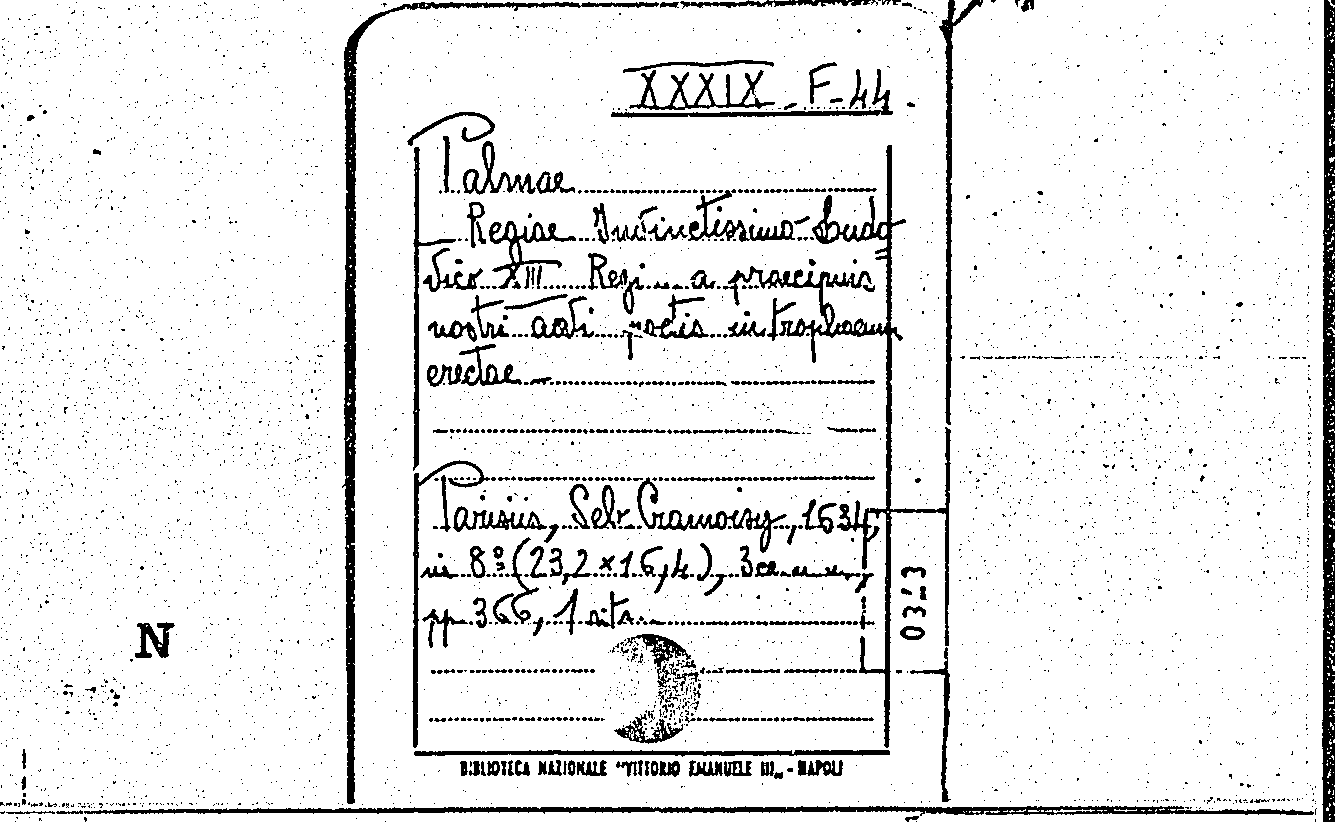 XXXIX - F-44.
Palmae
Regiae Invinctissimo Ludo=
vico XIII Regi ... a praecipuis
nostri aevi poetis in trophaeum
erectae -
Parisiis, Seb. Cramoisy, 1634,
in 8º (23,2 x 16,4), 3 cc. n. n.,
pp. 366, 1 ritr.
N
BIBLIOTECA NAZIONALE "VITTORIO EMANUELE III" - NAPOLI